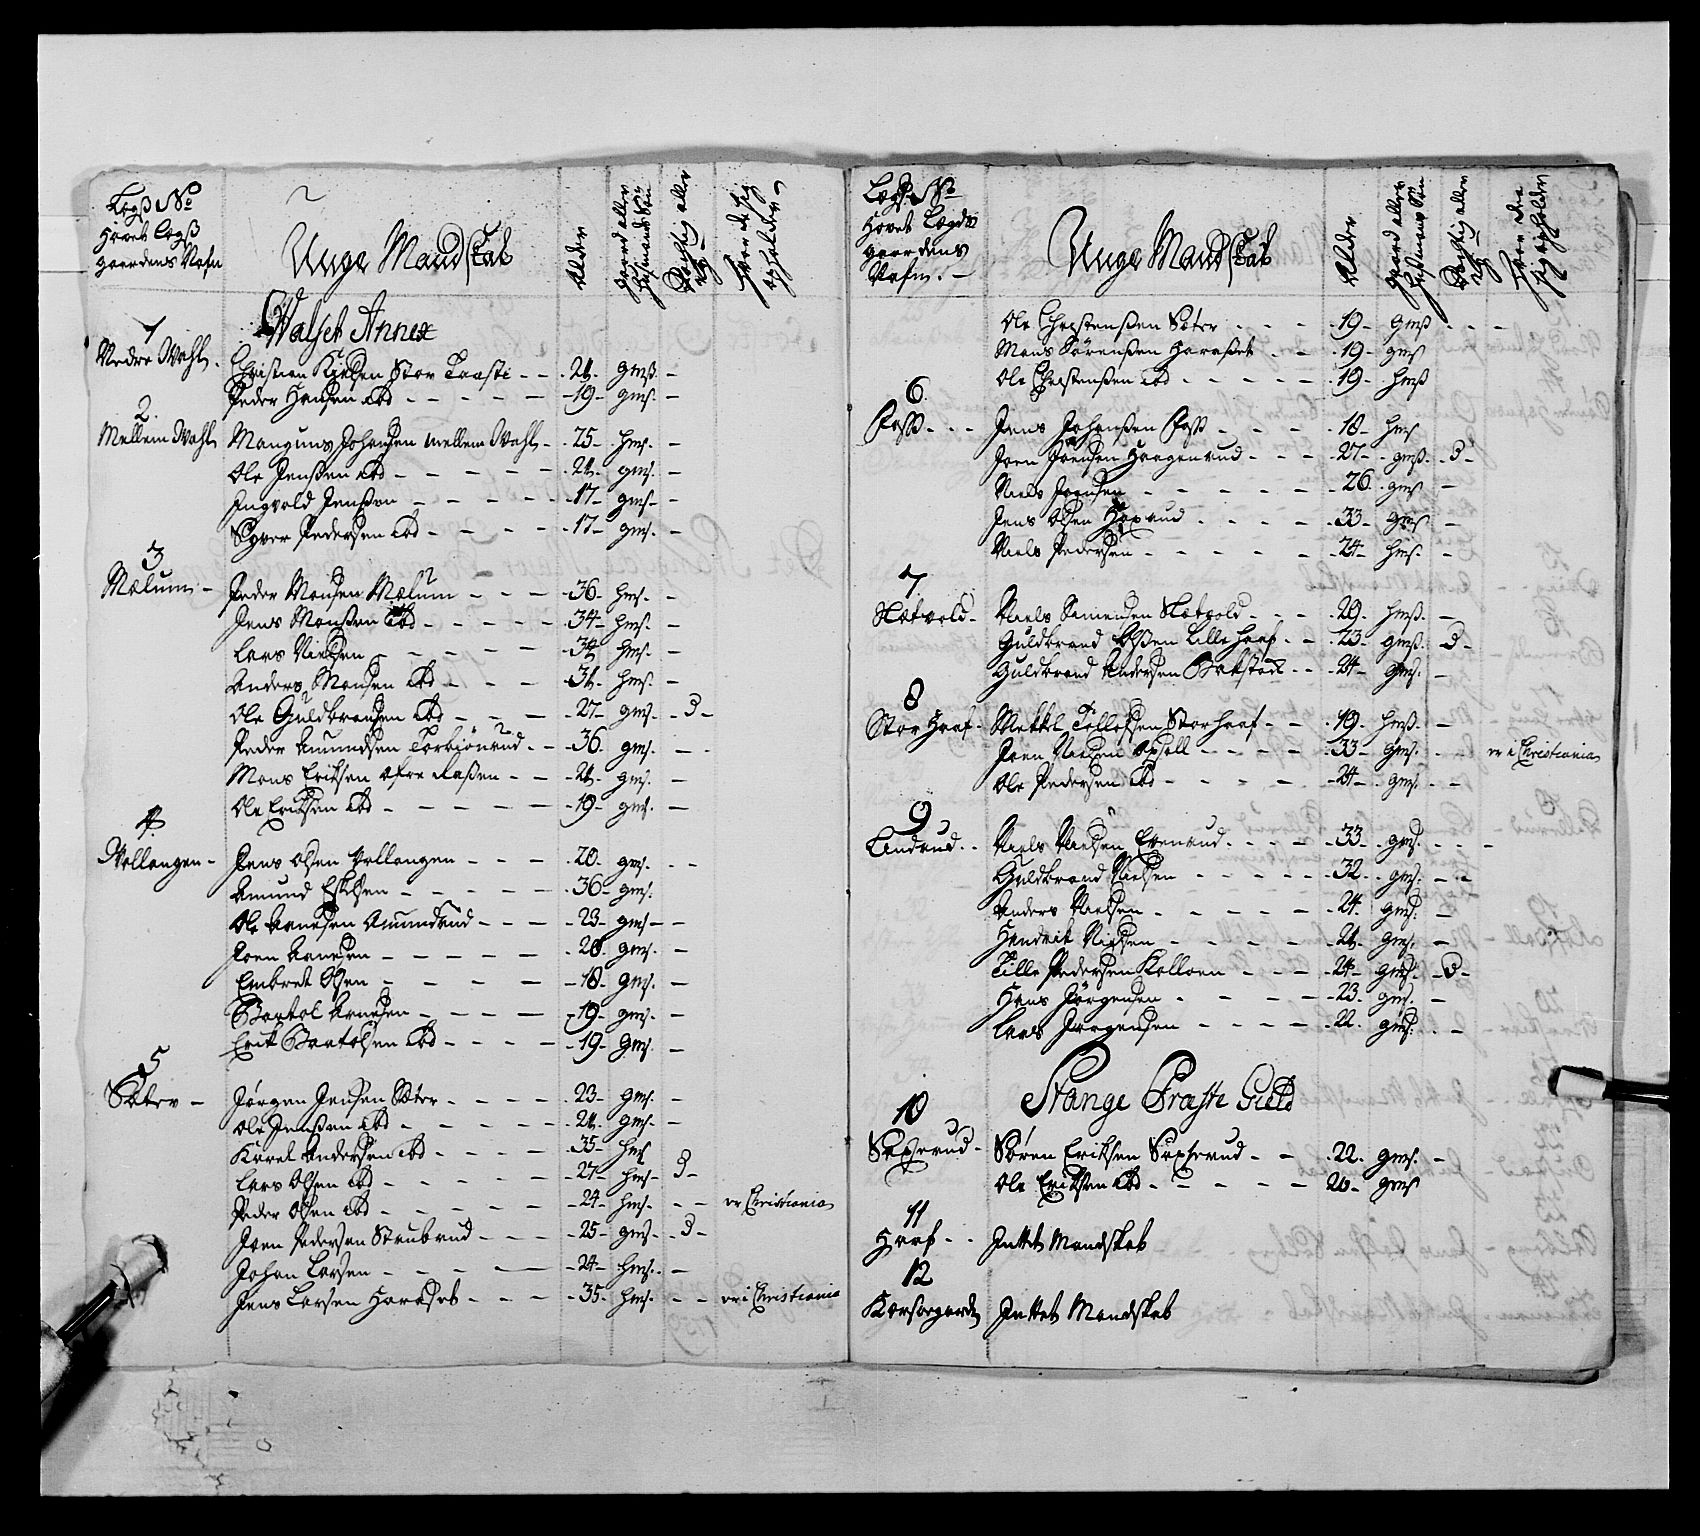 Legß No
Hovet Legß
gaardens Nafn
Unge Mandskab
Alder
gaard eller
Huusmands Søn
Dygtig eller
ey
Hvor de sig
opholder
Walset Annex
1
Nedre Wahl. Christian Nielsen Stor Traasti - - 21 - gmß. -
Peder Hansen ibd - - - - - 19 - gms. -
2.
Mellem Wahl Manguns Johansen mellem Wahl - 25 - hms. -
Ole Jensen ibd - - - - - 21 - gms. -
Ingvold Jensen - - - - - 17 - gms -
Syver Pedersen ibd - - - - - 17 - gms. -
3
Mælum - Peder Monsen Mælum - - - 36 - hms. -
Jens Monsen ibd - - - - - 34 - hms. -
Lars Nielsen - - - - - 34 hms. -
Anders Monsen ibd - - - - 31 - hms. -
Ole Guldbrandsen ibd - - - 27 - gms. - D -
Peder Amundsen Torbiønrud - - 36. gms. - -
Mons Eriksen øfre - - 21 - gms. -
Ole Eriksen ibd - - - - - 19 - gms. -
4.
Wellangen - Jens Olsen Wellangen - - - 20. gms. - -
Amund Eskelsen - - - - 36 - gms.
Ole Arnesen Amundrud - - - 23 - gms - -
Joen Arnesen - - - - - 20. gms. -
Embret Olsen - - - - 18 - gms. -
Bortol Arnesen - - - - 19 - gms. -
Erik Bortolsen ibd - - - - 19 - gms. -
5
Sæter - Jørgen Jensen Sæter - - - - 23 - gms. -
Ole Jensen ibd - - - - - 21 - gms. -
Karel Andersen ibd - - - - 35 - hms
Lars Olsen ibd - - - - - 27 - hms - D -
Peder Olsen ibd - - - - - 24 - hms. - - er Christiania
Joen Pedersen Stenbrud - - - 25 - gms - D -
Johan Larsen - - - - - 24 - hms. -
Jens Larsen Haraset - - - - 35 - hms. - - er i Christiania
Legß. No
Hovet Legds
gaardens
Nafn. -
Unge Mandskab
Alder
gaard eller
Huusmans Søn
Dygtig eller
ey
Hvor de
sig opholder
Ole Christensen Sæter - - - 19 - gmß - - -
Mons Sørensen Haraset - - 19 - gms
Ole Christensen ibd - - - - - 19 - hmß
6.
Foss - - - Jens Johansen Foss - - - - 18 - hms
Joen Joensen Haagenrud - - - 27 - gmß. - D -
Niels Joensen - - - - - - 26. gms -
Jens Olsen - - - - 33 - gms -
Niels Pedersen - - - - - 24 - hms. -
7
Sletvold - Niels Simensen Sletvold - - - 29. hmß. -
Guldbrand Olsen Lille Haaf - - 23 - gmß. - D -
Guldbrand Andersen Bakstad - - 24 - gms. -
8
Stor Haaf. Mekkel Tollefsen Storhaaf - - 19. hmß. -
Joen Nielsen Opsall - - - - 33 - gms. - - er i Christiania
Ole Pedersen ibd - - - - 24 - gms. - -
9
Lindrud. - Niels Nielsen Evenrud - - - 33. gms. - - -
Guldbrand Nielsen - - - - - 32. gms. - -
Anders Nielsen - - - - - 24. gms. -
Hendrik Nielsen - - - - - 21 - gms. -
Tille Pedersen Kolloen - - - 24 - gms. - D -
Hans Jørgensen - - - - 23. gms. -
Lars Jørgensen - - - - 22. gms. - -
Stange Præste Gield
10
Saxerud - Søren Eriksen Saxerud - - 22. gms. -
Ole Eriksen ibd - - - - - 20 - gms
11
Haaf - - Inttet Mandskab
12
Korsergarden Inttet Mandskab